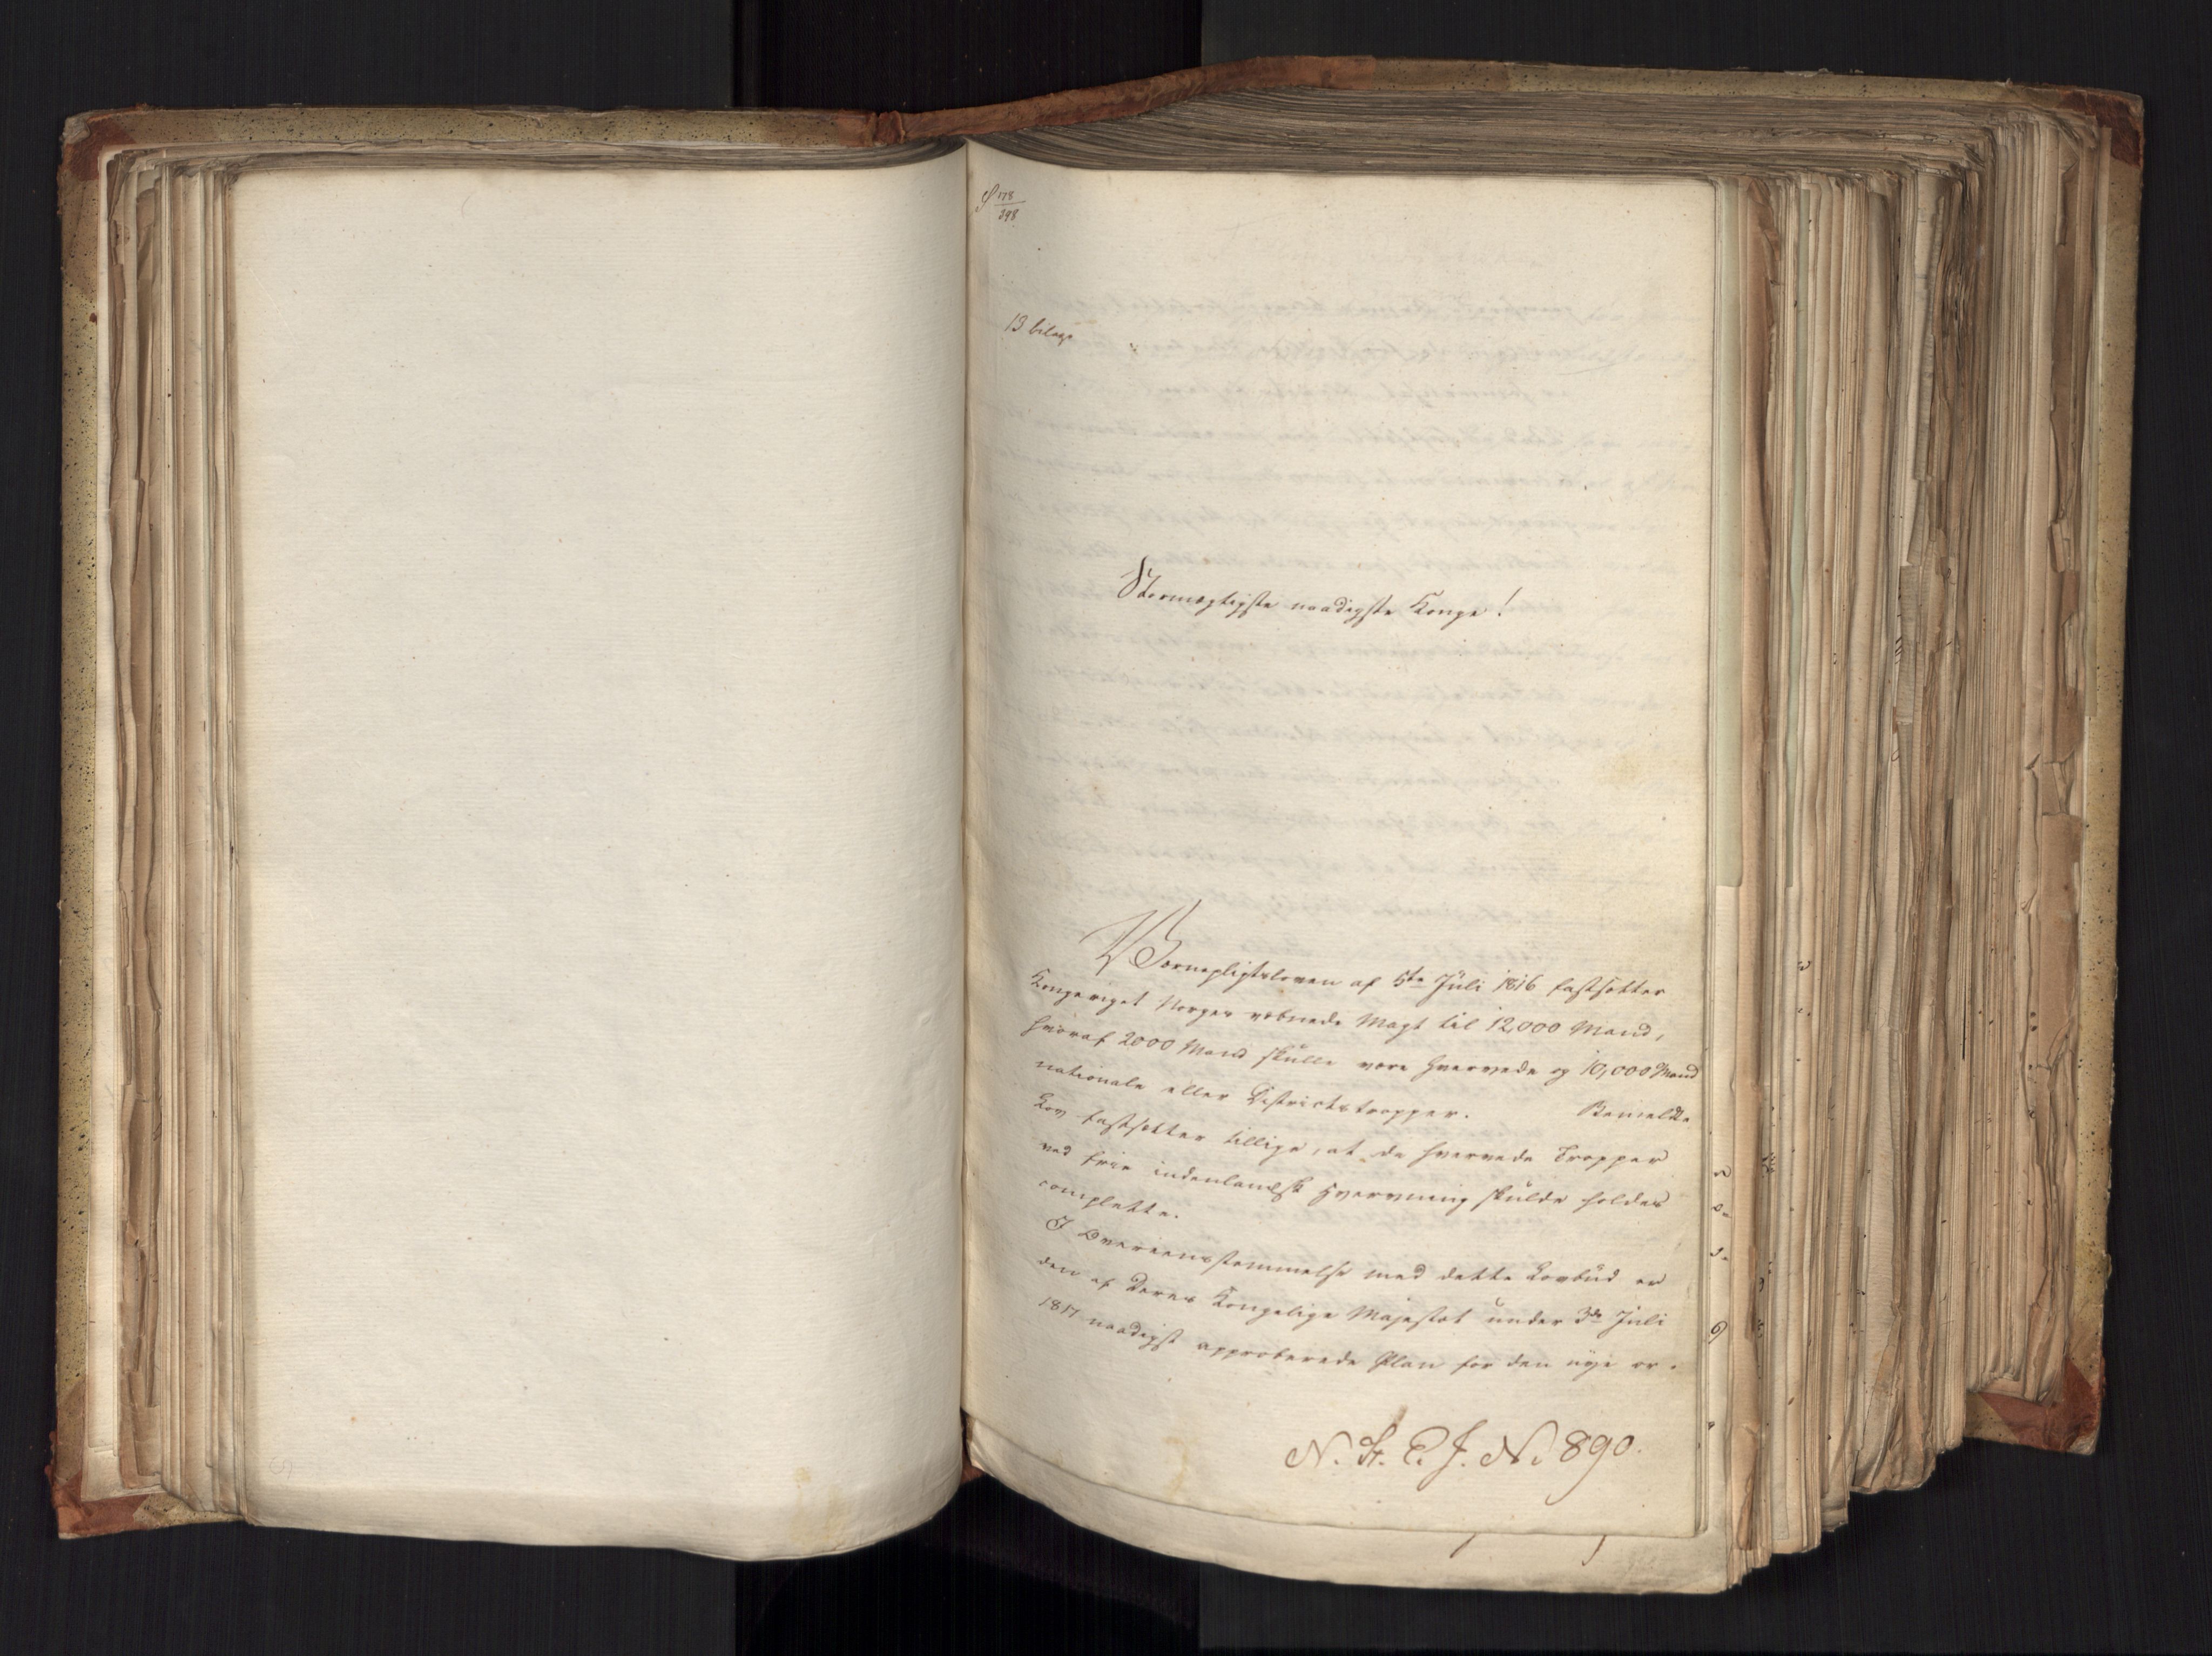 S 178/298
13 bilage
Stormægtigste naadigste Konge!
Værnepligtsloven af 5te Juli 1816 fastsætter
Kongeriget Norges væbnede Magt til 12,000 Mand,
hvoraf 2000 Mand skulle være hvervede og 10,000 Mand
nationale eller Districtstropper. Bemeldte
Lov fastsætter tillige, at de hvervede Tropper
ved frie indenlandsk Hvervning skulde holdes
complette.
I Overeensstemmelse med dette Lovbud er
den af Deres Kongelige Majestæt under 3de Juli
1817 naadigst approberede Plan for den nye or-
N. St. E. J. N. 890.